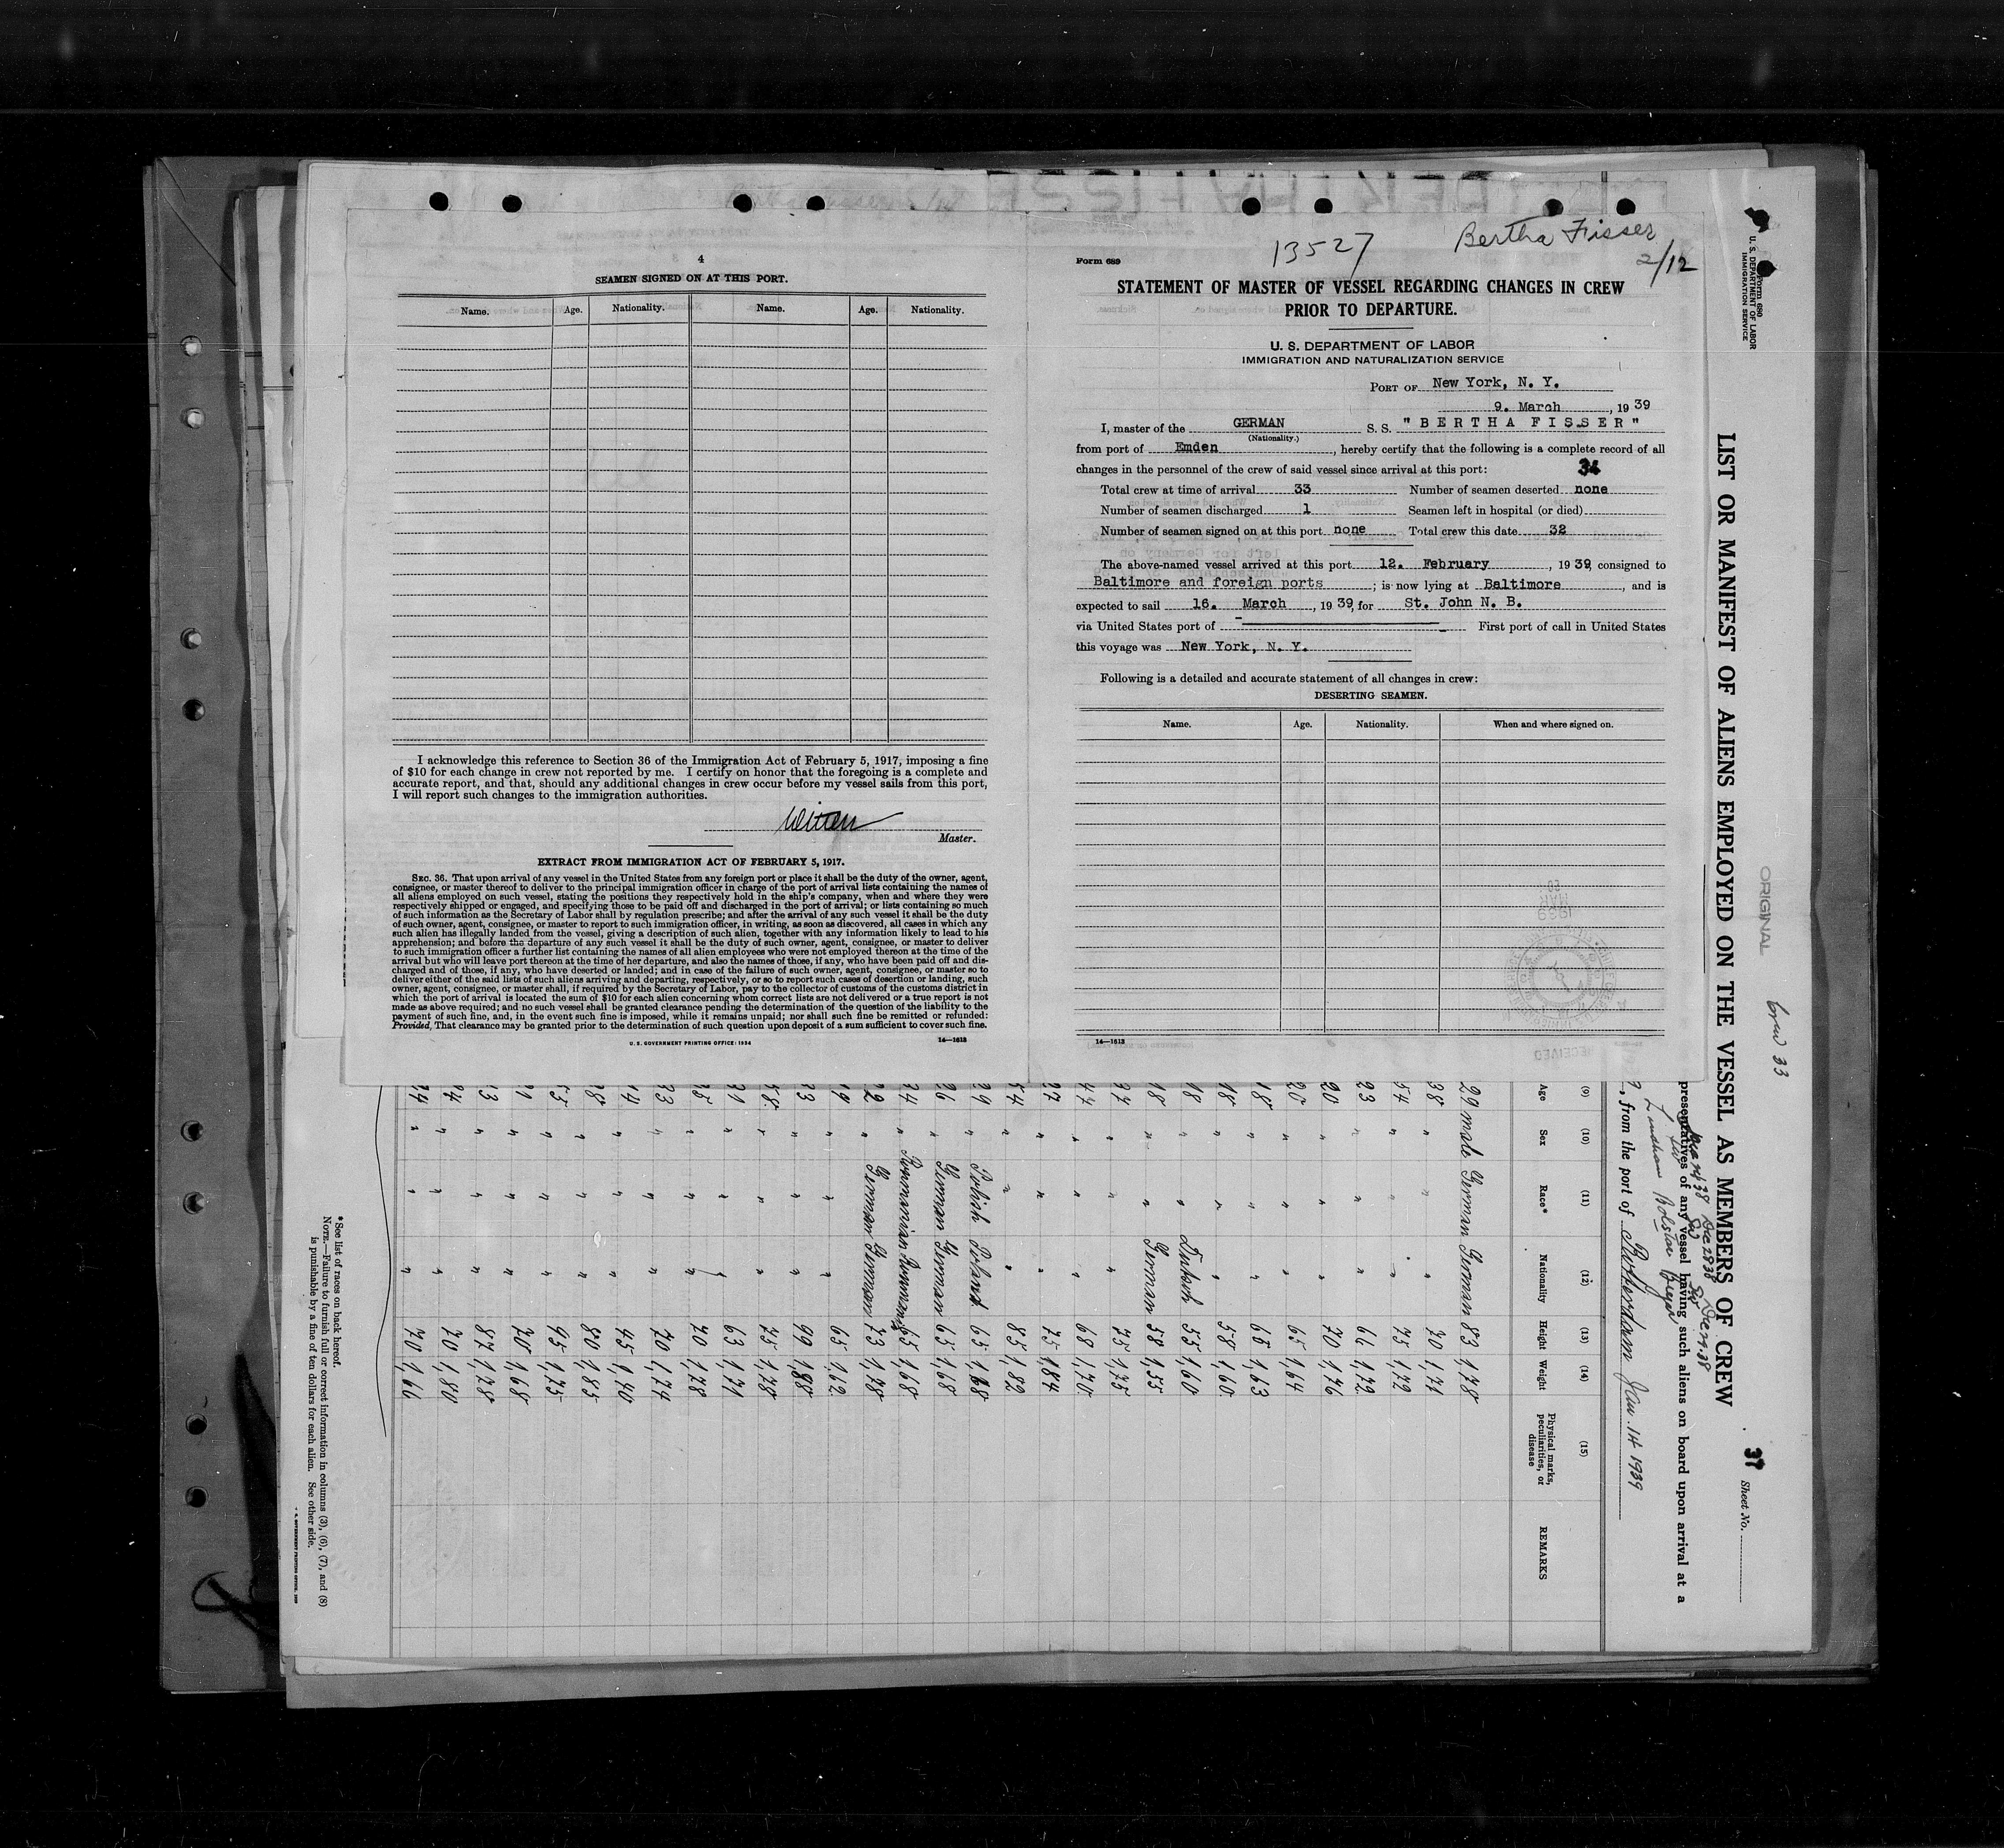 4
SEAMEN SIGNED ON AT THIS PORT.
Name. Age. Nationality. Name. Age. Nationality.
I acknowledge this reference to Section 36 of the Immigration Act of February 5, 1917, imposing a fine
of $10 for each change in crew not reported by me. I certify on honor that the foregoing is a complete and
accurate report, and that, should any additional changes in crew occur before my vessel sails from this port,
I will report such changes to the immigration authorities.
Master.
EXTRACT FROM IMMIGRATION ACT OF FEBRUARY 5, 1917.
SEC. 36. That upon arrival of any vessel in the United States from any foreign port or place it shall be the duty of the owner, agent,
consignee, or master thereof to deliver to the principal immigration officer in charge of the port of arrival lists containing the names of
all aliens employed on such vessel, stating the positions they respectively hold in the ship's company, when and where they were
respectively shipped or engaged, and specifying those to be paid off and discharged in the port of arrival; or lists containing so much
of such information as the Secretary of Labor shall by regulation prescribe; and after the arrival of any such vessel it shall be the duty
of such owner, agent, consignee, or master to report to such immigration officer, in writing, as soon as discovered, all cases in which any
such alien has illegally landed from the vessel, giving a description of such alien, together with any information likely to lead to his
apprehension; and before the departure of any such vessel it shall be the duty of such owner, agent, consignee, or master to deliver
to such immigration officer a further list containing the names of all alien employees who were not employed thereon at the time of the
arrival but who will leave port thereon at the time of her departure, and also the names of those, if any, who have been paid off and dis-
charged and of those, if any, who have deserted or landed; and in case of the failure of such owner, agent, consignee, or master so to
deliver either of the said lists of such aliens arriving and departing, respectively, or so to report such cases of desertion or landing, such
owner, agent, consignee, or master shall, if required by the Secretary of Labor, pay to the collector of customs of the customs district in
which the port of arrival is located the sum of $10 for each alien concerning whom correct lists are not delivered or a true report is not
made as above required; and no such vessel shall be granted clearance pending the determination of the question of the liability to the
payment of such fine, and, in the event such fine is imposed, while it remains unpaid; nor shall such fine be remitted or refunded:
Provided, That clearance may be granted prior to the determination of such question upon deposit of a sum sufficient to cover such fine.
U. S. GOVERNMENT PRINTING OFFICE: 1934 14—1613
13527 Bertha Fisser
2/12
Form 689
STATEMENT OF MASTER OF VESSEL REGARDING CHANGES IN CREW
PRIOR TO DEPARTURE.
U. S. DEPARTMENT OF LABOR
IMMIGRATION AND NATURALIZATION SERVICE
PORT OF New York, N. Y.
9. March, 19 39
I, master of the GERMAN S. S. "BERTHA FISSER"
(Nationality.)
from port of Emden, hereby certify that the following is a complete record of all
changes in the personnel of the crew of said vessel since arrival at this port: 34
Total crew at time of arrival 33 Number of seamen deserted none
Number of seamen discharged 1 Seamen left in hospital (or died)
Number of seamen signed on at this port none Total crew this date 32
The above-named vessel arrived at this port 12. February, 19 39, consigned to
Baltimore and foreign ports; is now lying at Baltimore, and is
expected to sail 16. March, 19 39, for St. John N. B.
via United States port of First port of call in United States
this voyage was New York, N. Y.
Following is a detailed and accurate statement of all changes in crew:
DESERTING SEAMEN.
Name. Age. Nationality. When and where signed on.
14—1613
Form 680
U. S. DEPARTMENT OF LABOR
IMMIGRATION SERVICE
ORIGINAL
crew 33
37
Sheet No.
LIST OR MANIFEST OF ALIENS EMPLOYED ON THE VESSEL AS MEMBERS OF CREW
presentatives of any vessel having such aliens on board upon arrival at a
, from the port of Rotterdam Jan. 14 1939
(9) (10) (11) (12) (13) (14) (15)
Age Sex Race* Nationality Height Weight Physical marks, peculiarities, or disease REMARKS
29 male German German 83 1,78
38 " " " 70 1,71
54 " " " 75 1,72
23 " " " 66 1,72
20 " " " 70 1,76
20 " " " 65 1,64
18 " " " 65 1,63
18 " " " 58 1,60
18 " " Dutch 55 1,60
18 " " German 58 1,55
" " " 75 1,75
" " " 68 1,70
27 " " " 75 1,84
54 " " " 85 1,82
29 " Polish Poland 65 1,68
26 " German German 65 1,68
24 " Rummanian 65 1,68
22 " German German 73 1,78
19 " " " 65 1,62
23 " " " 99 1,88
58 " " " 75 1,78
21 " " " 63 1,71
" " " 70 1,78
23 " " " 70 1,74
" " " 45 1,40
28 " " " 80 1,85
" " " 95 1,75
" " " 70 1,68
" " " 87 1,78
24 " " " 70 1,80
24 " " " 70 1,66
*See list of races on back hereof.
NOTE.—Failure to furnish full or correct information in columns (3), (6), (7), and (8)
is punishable by a fine of ten dollars for each alien. See other side.